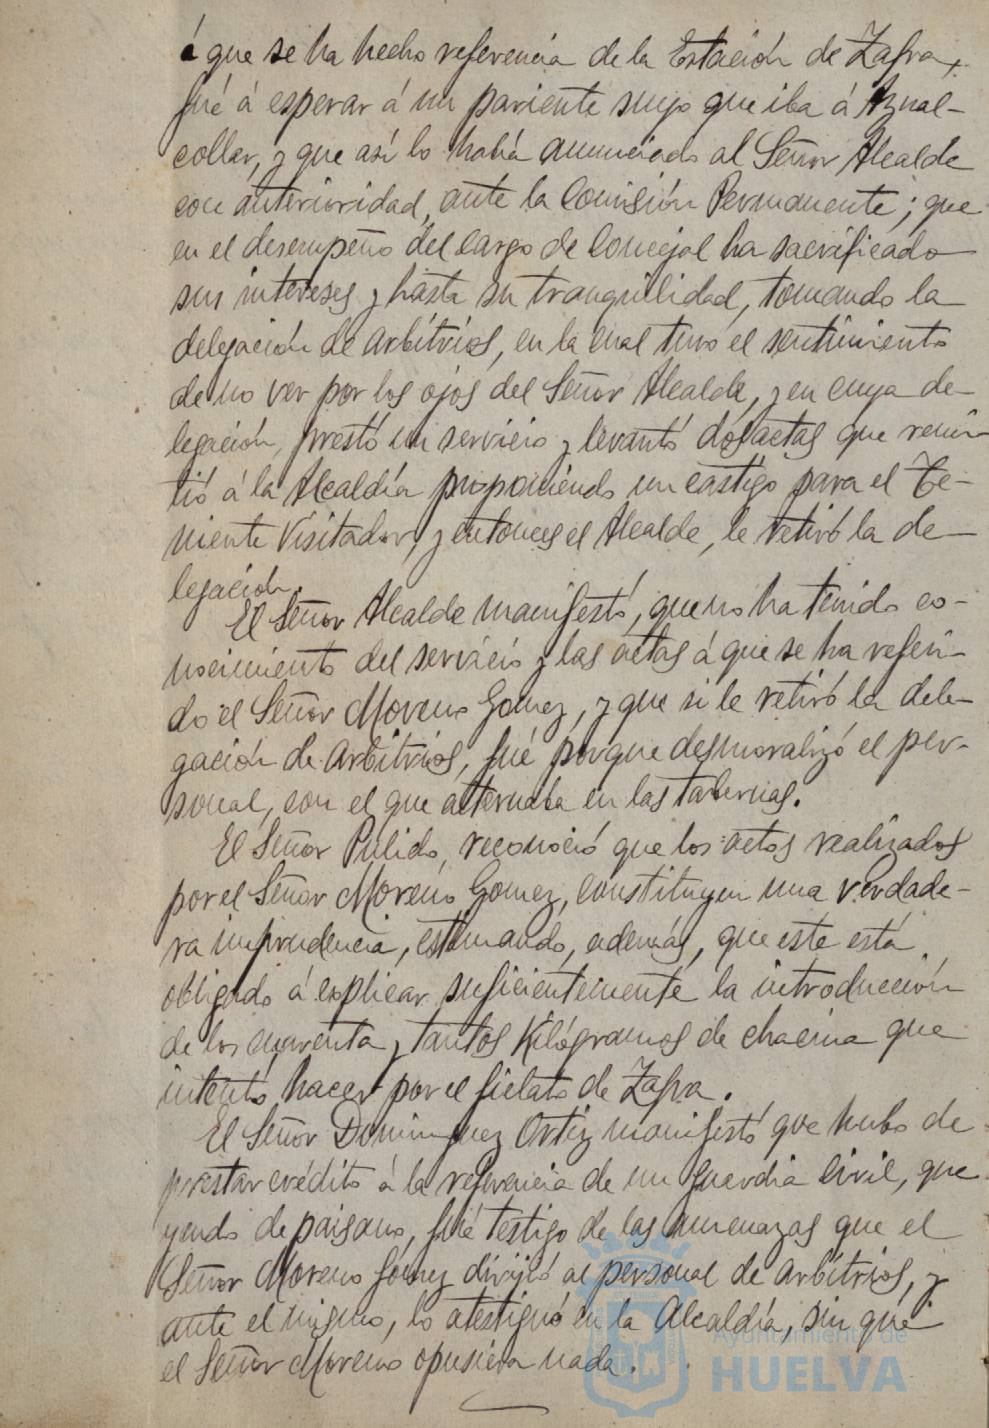 á que se ha hecho referencia de la Estación de Zafra,
fué á esperar á un pariente suyo que iba á Aznal-
collar, y que así lo había anunciado al Señor Alcalde
con anterioridad, ante la Comisión Permanente; que
en el desempeño del cargo de Concejal ha sacrificado
sus intereses y hasta su tranquilidad, tomando la
delegación de Arbítrios, en la cual tuvo el sentimiento
de no ver por los ojos del Señor Alcalde, y en cuya de-
legación, prestó un servicio y levantó dos actas que remi-
tió á la Alcaldía proponiendo un castigo para el Te-
niente Visitador, y entonces el Alcalde, le retiró la de-
legación.
El Señor Alcalde manifestó, que no ha tenido co-
nocimiento del servicio y las actas á que se ha referi-
do el Señor Moreno Gomez, y que si le retiró la dele-
gación de Arbítrios, fué porque desmoralizó el per-
sonal, con el que alternaba en las tabernas.
El Señor Pulido, reconoció que los actos realizados
por el Señor Moreno Gomez, constituyen una verdade-
ra imprudencia, estimando, además, que este está
obligado á explicar suficientemente la introducción
de los cuarenta y tantos Kilógramos de chacina que
intentó hacer por el fielato de Zafra.
El Señor Dominguez Ortiz manifestó que hubo de
prestar crédito á la referencia de un guardia civil, que
yendo de paisano, fué testigo de las amenazas que el
Señor Moreno Gómez dirijió al personal de Arbítrios, y
ante el mismo, lo atestiguó en la Alcaldía, sin que
el Señor Moreno opusiera nada.
Ayuntamiento de
HUELVA